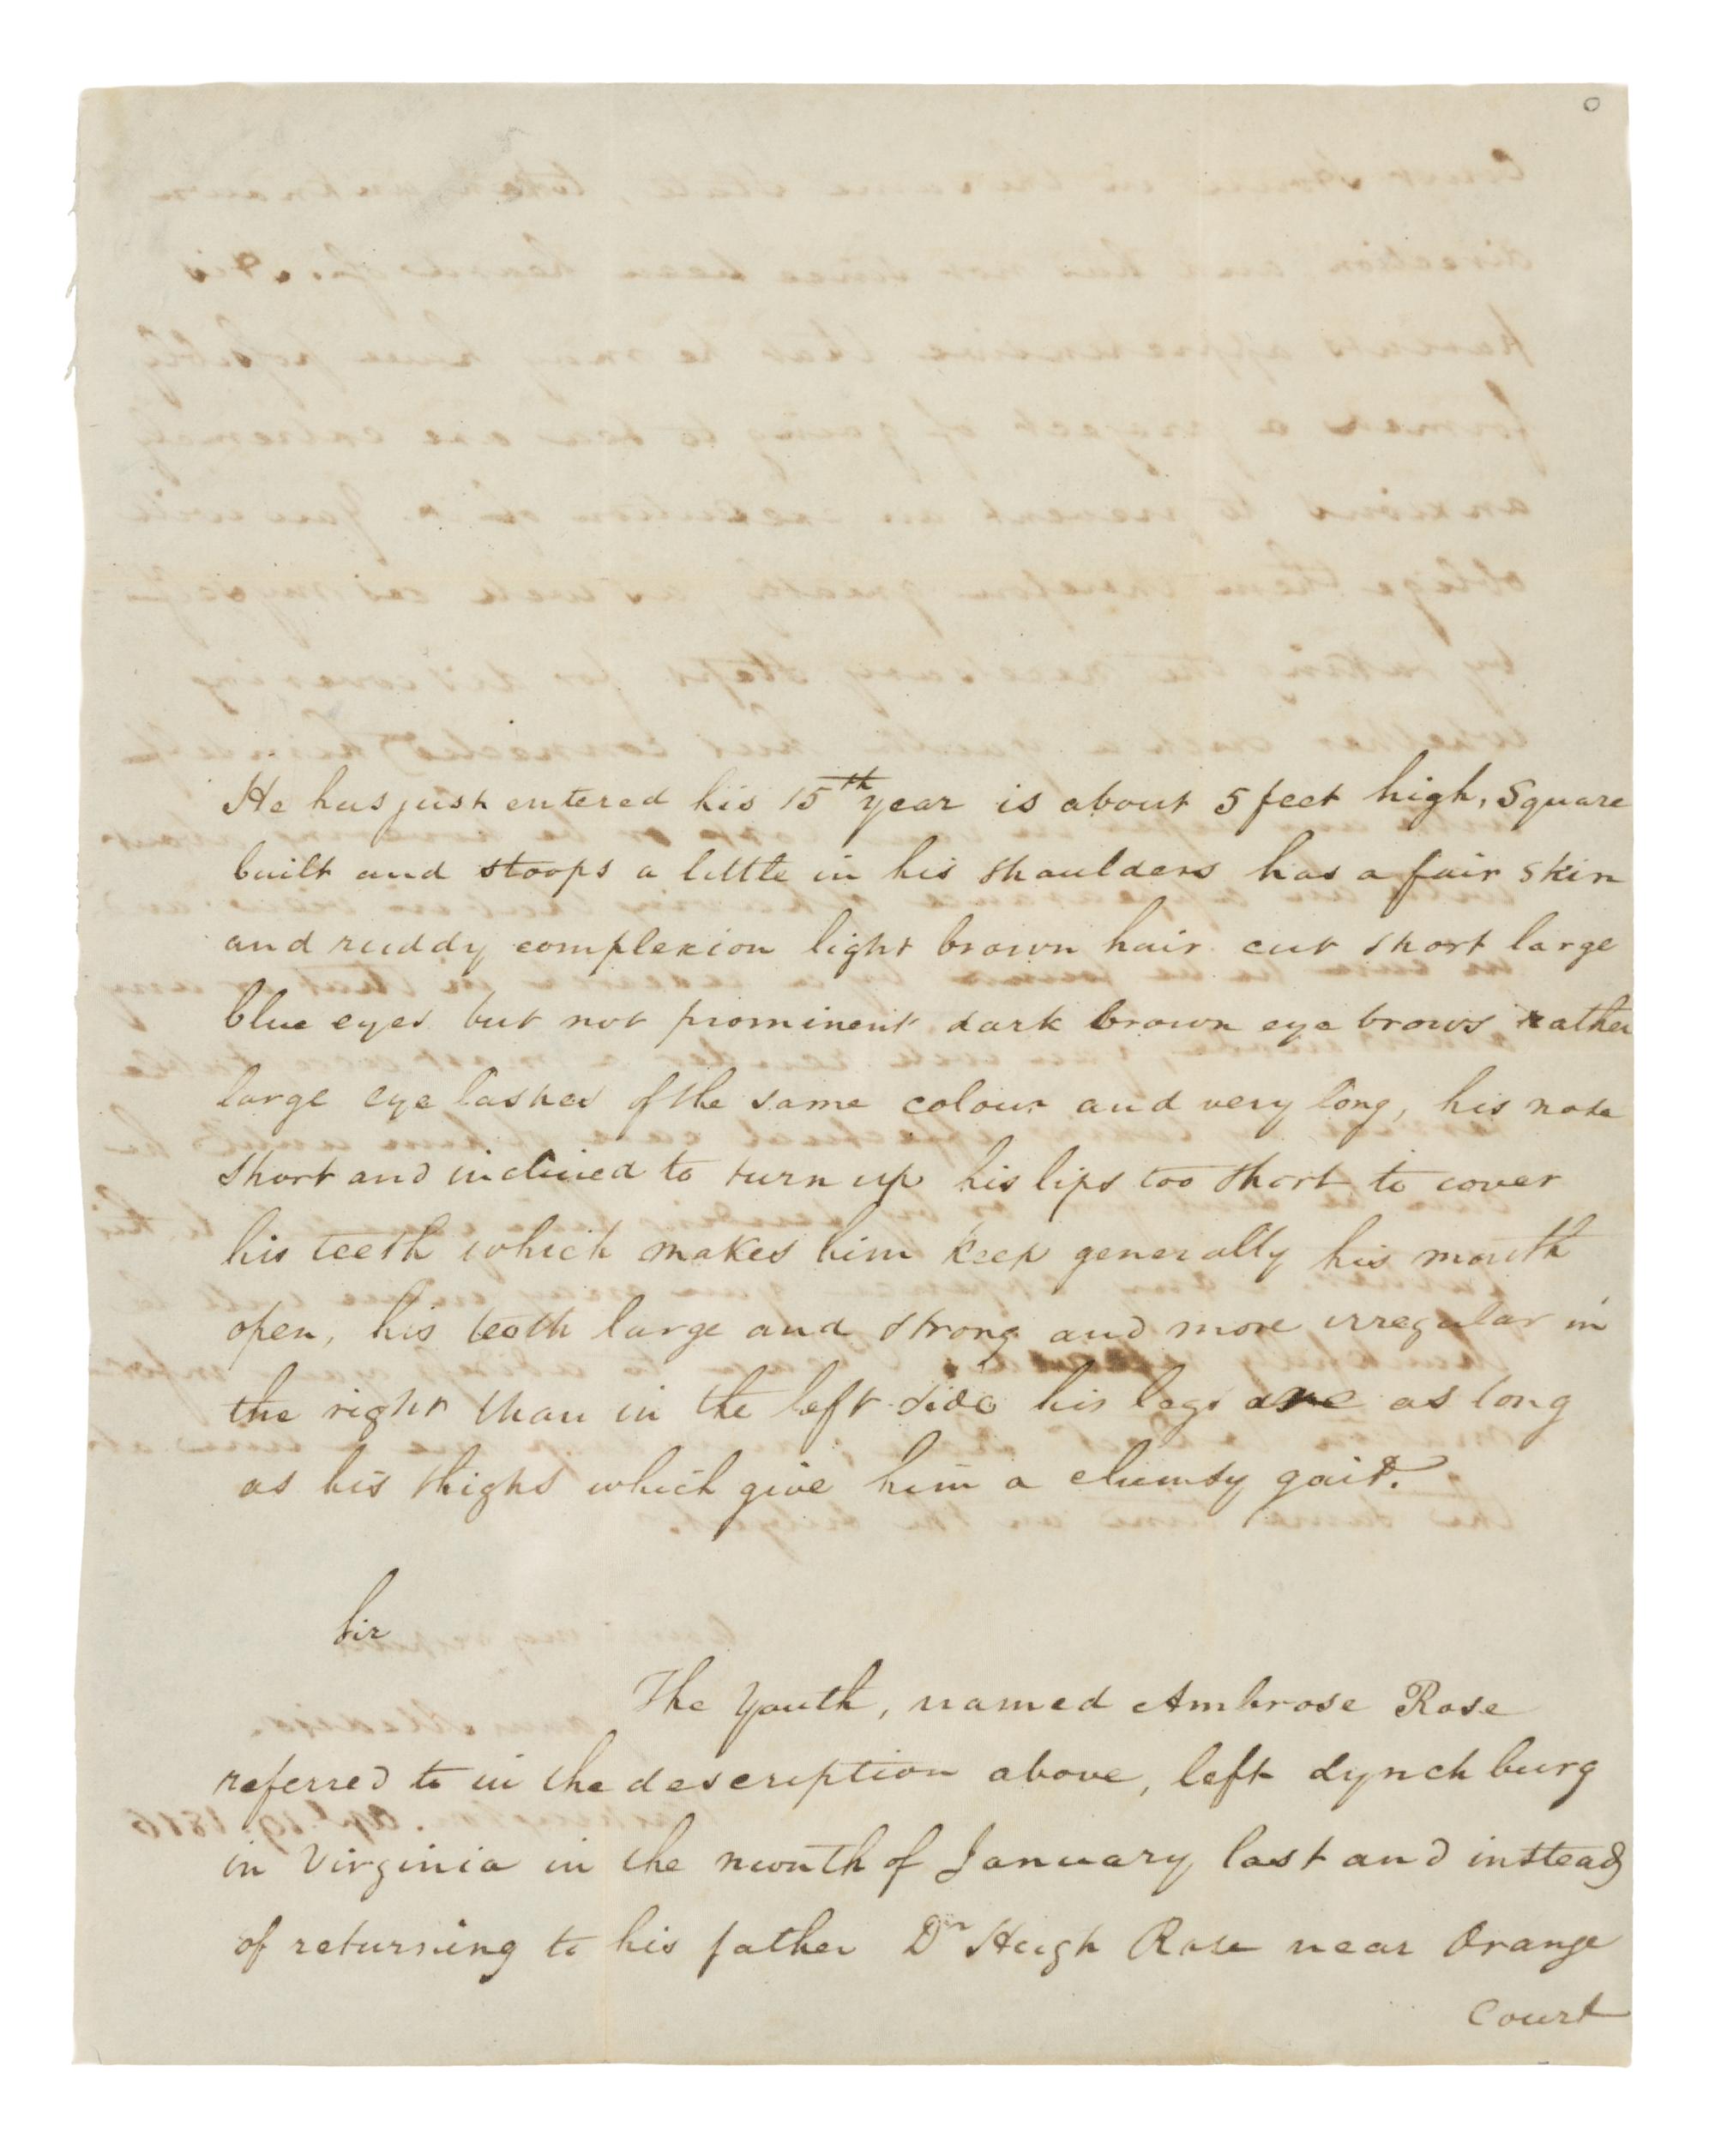 He has just entered his 15th year is about 5 feet high, Square
built and stoops a little in his shoulders has a fair skin
and ruddy complexion light brown hair cut short large
blue eyes but not prominent dark brown eye brows rather
large eye lashes of the same colour and very long, his nose
short and inclined to turn up his lips too short to cover
his teeth which makes him keep generally his mouth
open, his teeth large and strong and more irregular in
the right than in the left side his legs are as long
as his thighs which give him a clumsy gait.
Sir
The Youth, named Ambrose Rose
referred to in the description above, left Lynchburg
in Virginia in the month of January last and instead
of returning to his father Dr Hugh Rose near Orange
Court